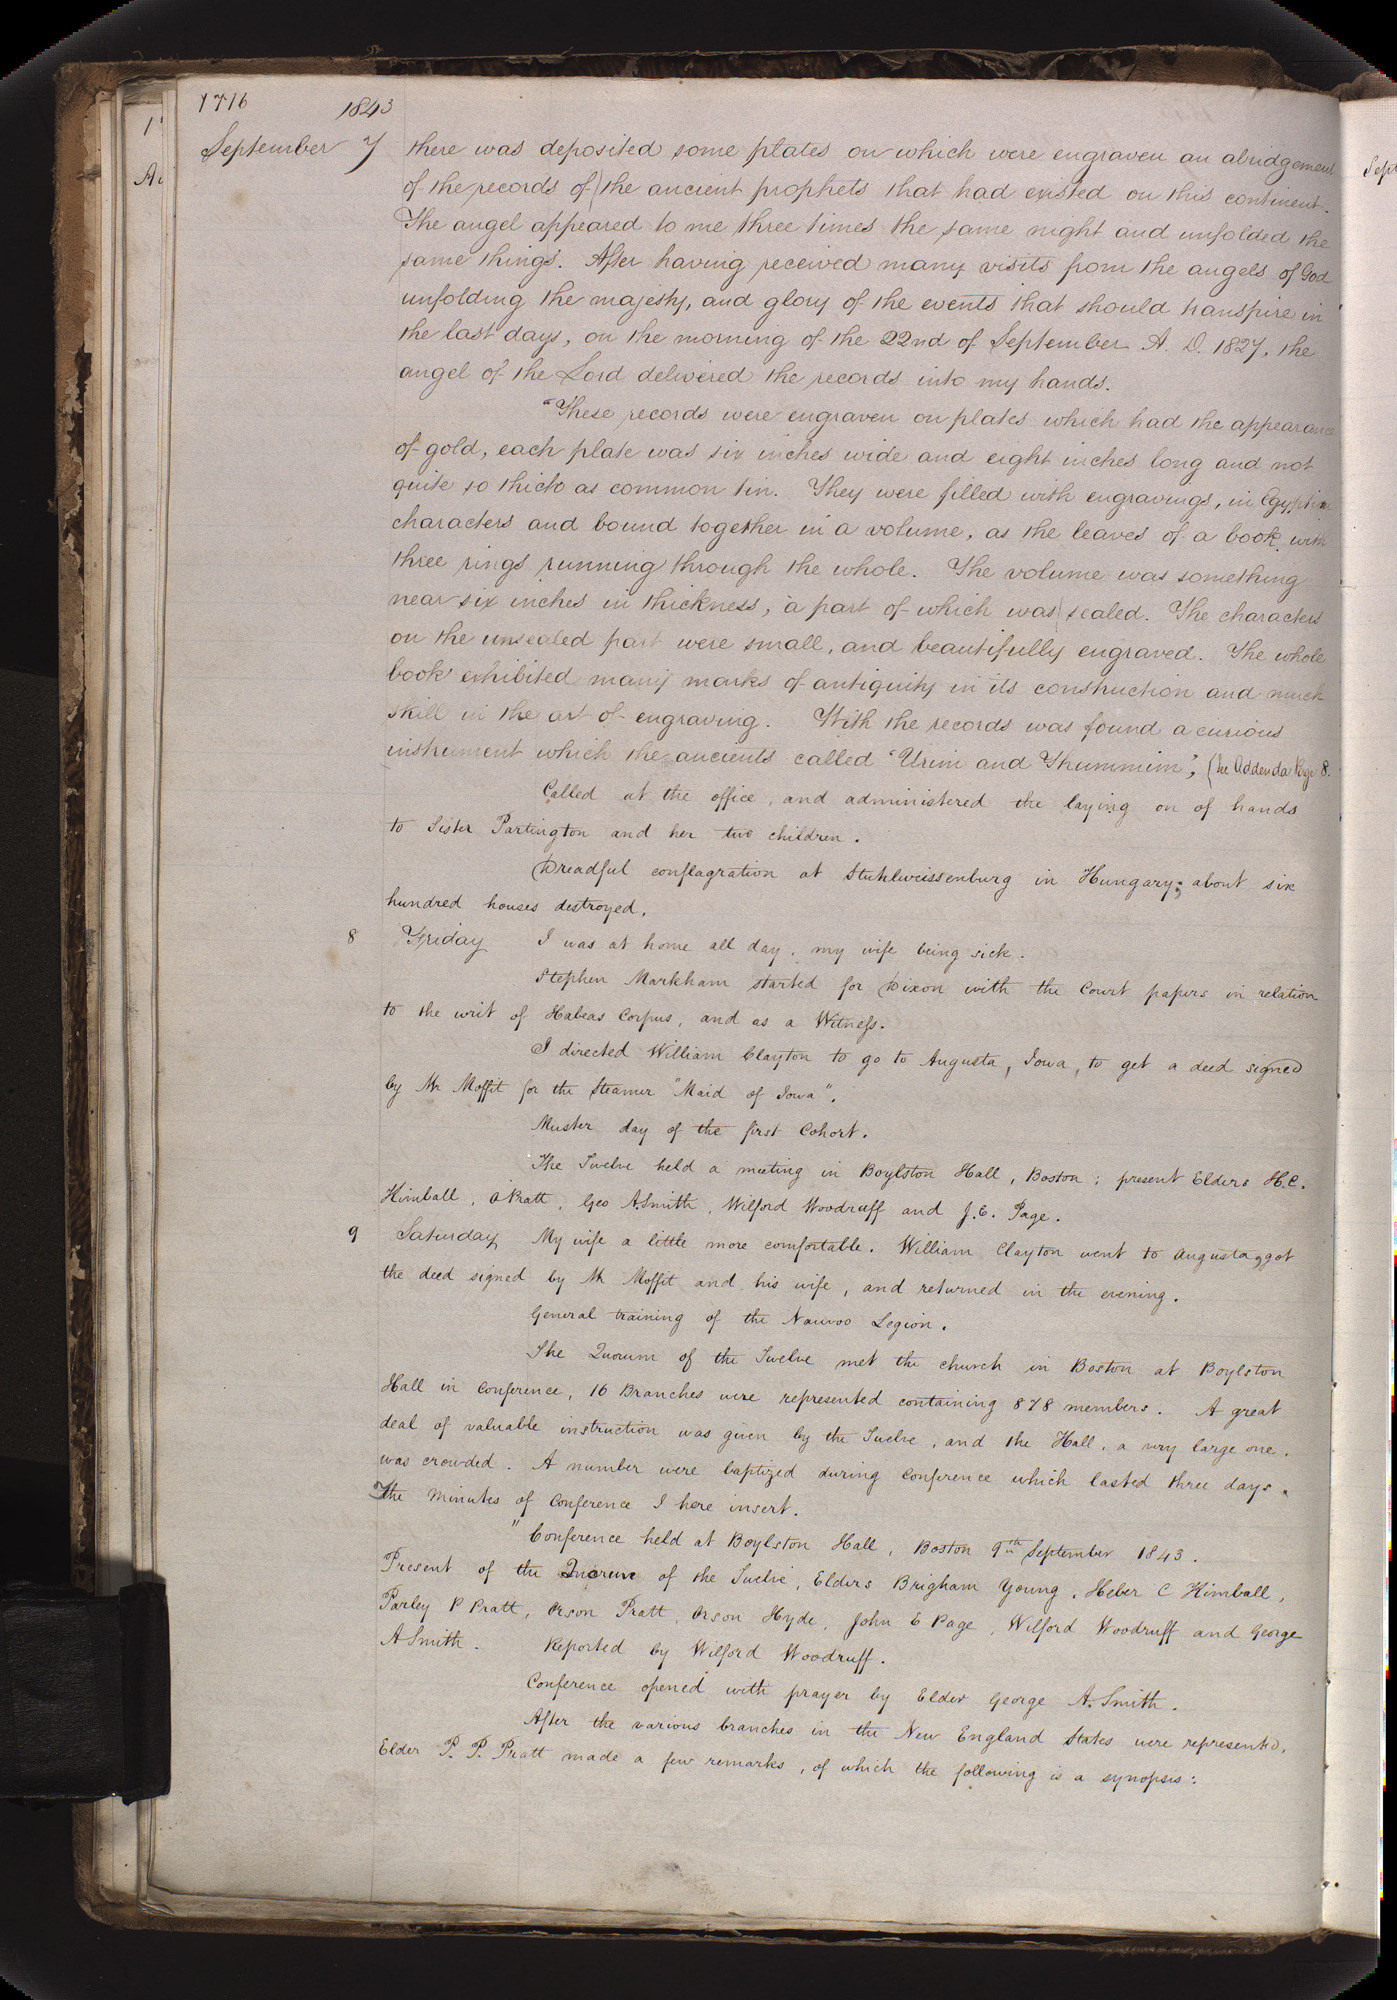 1716 1843
September 7 there was deposited some plates on which were engraven an abridgement
of the records of the ancient prophets that had existed on this continent.
The angel appeared to me three times the same night and unfolded the
same things. After having received many visits from the angels of God
unfolding the majesty, and glory of the events that should transpire in
the last days, on the morning of the 22nd of September A. D. 1827, the
angel of the Lord delivered the records into my hands.
"These records were engraven on plates which had the appearance
of gold, each plate was six inches wide and eight inches long and not
quite so thick as common tin. They were filled with engravings, in Egyptian
characters and bound together in a volume, as the leaves of a book with
three rings running through the whole. The volume was something
near six inches in thickness, a part of which was sealed. The characters
on the unsealed part were small, and beautifully engraved. The whole
book exhibited many marks of antiquity in its construction and much
skill in the art of engraving. With the records was found a curious
instrument which the ancients called "Urim and Thummim", (See Addenda Page 8.
Called at the office, and administered the laying on of hands
to Sister Partington and her two children.
Dreadful conflagration at Stuhlweissenburg in Hungary; about six
hundred houses destroyed.
8 Friday I was at home all day, my wife being sick.
Stephen Markham started for Dixon with the Court papers in relation
to the writ of Habeas Corpus, and as a Witness.
I directed William Clayton to go to Augusta, Iowa, to get a deed signed
by Mr Moffit for the Steamer "Maid of Iowa".
Muster day of the first Cohort.
The Twelve held a meeting in Boylston Hall, Boston; present Elders H.C.
Kimball, O Pratt, Geo A. Smith, Wilford Woodruff and J. E. Page.
9 Saturday My wife a little more comfortable. William Clayton went to Augusta, got
the deed signed by Mr Moffit and his wife, and returned in the evening.
General training of the Nauvoo Legion.
The Quorum of the Twelve met the church in Boston at Boylston
Hall in Conference, 16 Branches were represented containing 878 members. A great
deal of valuable instruction was given by the Twelve, and the Hall, a very large one,
was crowded. A number were baptized during Conference which lasted three days.
The Minutes of Conference I here insert.
"Conference held at Boylston Hall, Boston 9th September 1843.
Present of the Quorum of the Twelve, Elders Brigham Young, Heber C Kimball,
Parley P Pratt, Orson Pratt, Orson Hyde, John E Page, Wilford Woodruff and George
A Smith. Reported by Wilford Woodruff.
Conference opened with prayer by Elder George A. Smith.
After the various branches in the New England States were represented,
Elder P. P. Pratt made a few remarks, of which the following is a synopsis:
Sept